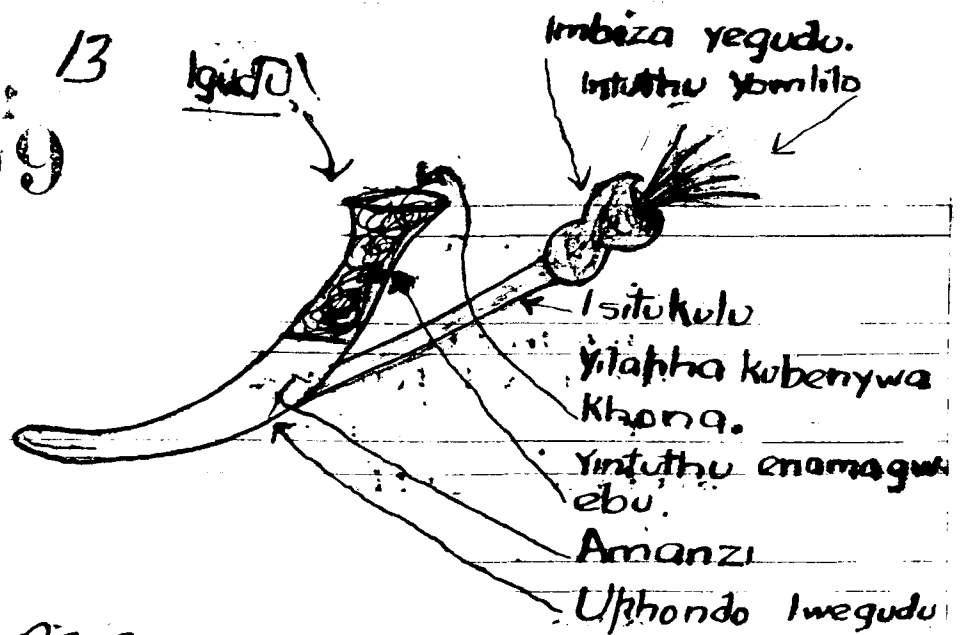 13
Igudu!
9
Imbiza yegudu.
Intuthu yomlilo
Isitukulu
Yilapha kubenywa
khona.
Yintuthu enamagw
ebu.
Amanzi
Uphondo lwegudu